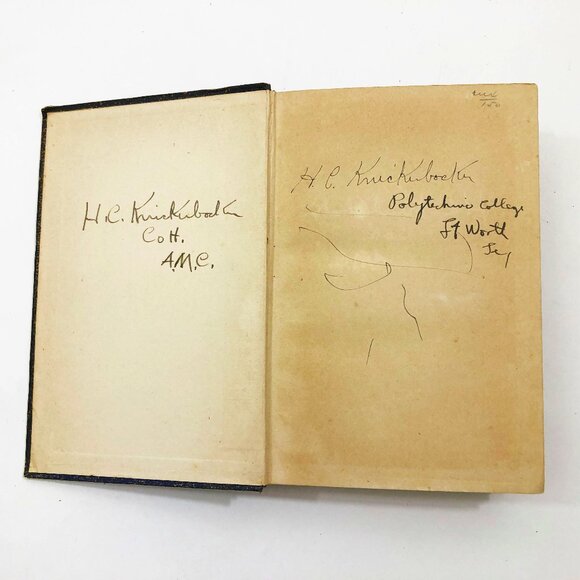 H. C. Knickerbocker
Co H.
A.M.C.
1.50
H. C. Knickerbocker
Polytechnic College
Ft Worth
Tex